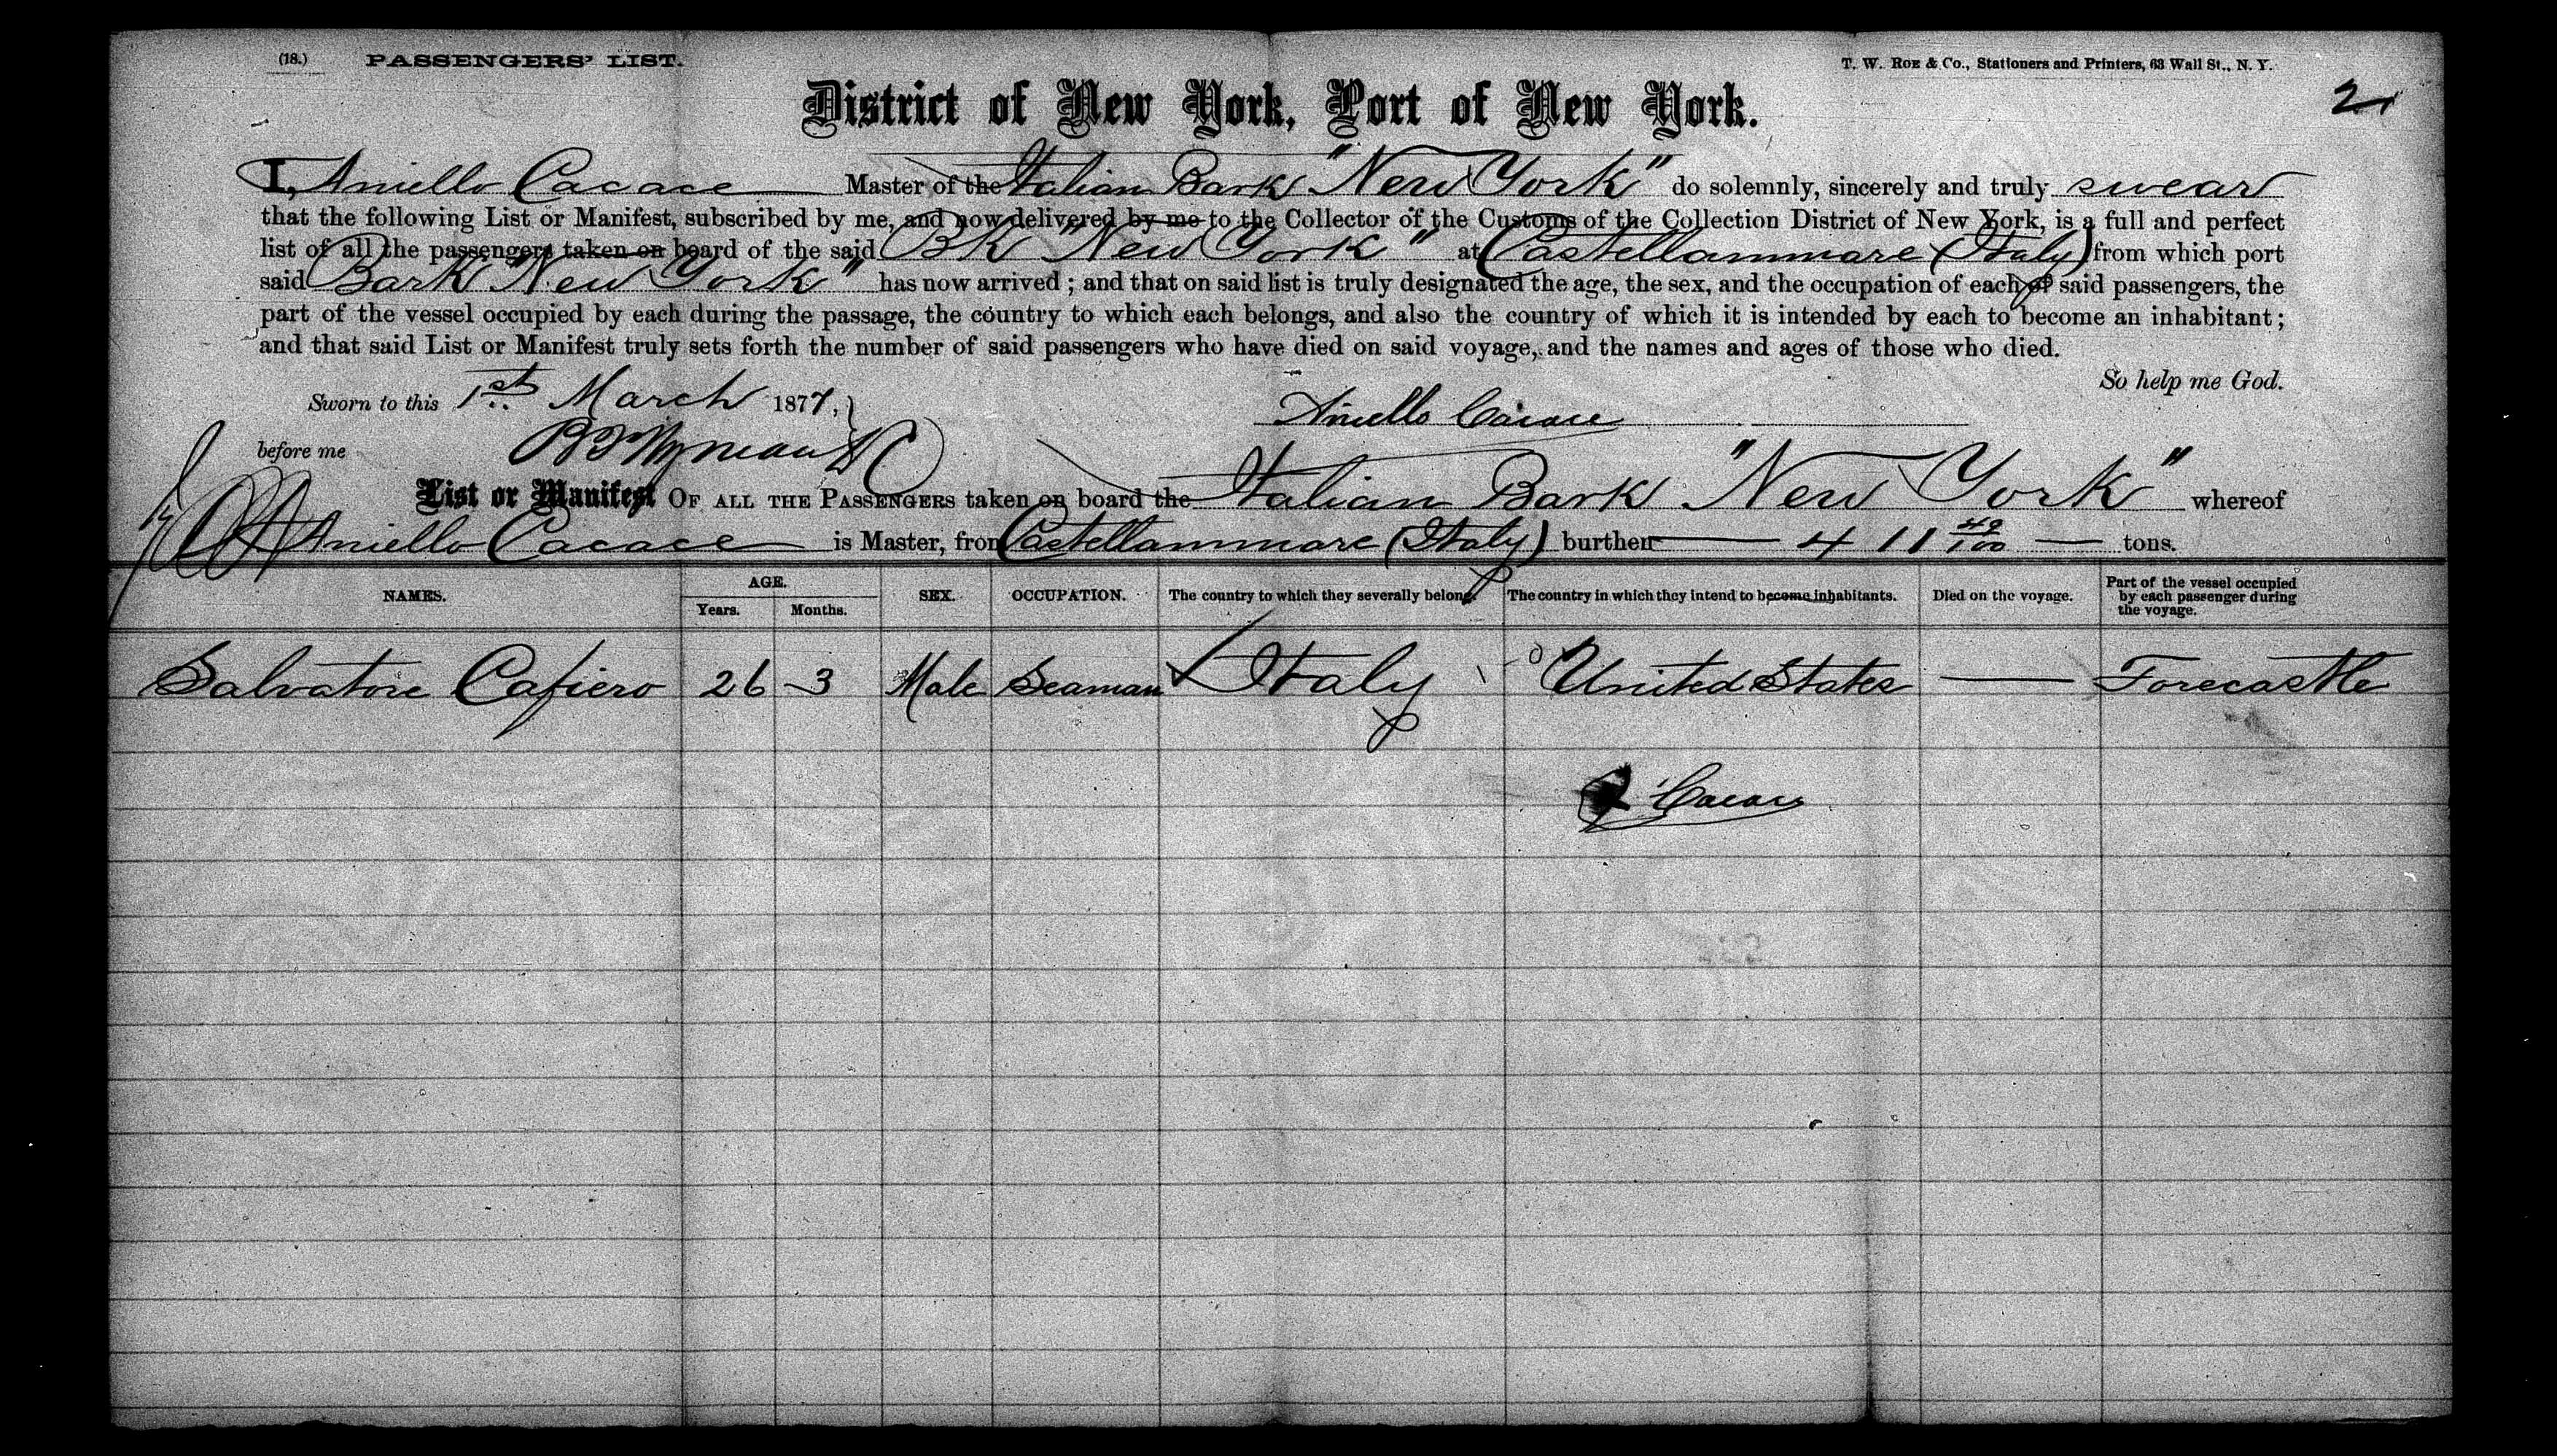 (18.) PASSENGERS' LIST. T. W. ROE & Co., Stationers and Printers, 63 Wall St., N. Y.
District of New York, Port of New York. 2
I, Aniello Cacace Master of the Italian Bark "New York" do solemnly, sincerely and truly swear
that the following List or Manifest, subscribed by me, and now delivered by me to the Collector of the Customs of the Collection District of New York, is a full and perfect
list of all the passengers taken on board of the said Bk "New York" at Castellammare (Italy) from which port
said Bark "New York" has now arrived ; and that on said list is truly designated the age, the sex, and the occupation of each of said passengers, the
part of the vessel occupied by each during the passage, the country to which each belongs, and also the country of which it is intended by each to become an inhabitant ;
and that said List or Manifest truly sets forth the number of said passengers who have died on said voyage, and the names and ages of those who died.
So help me God.
Sworn to this 1st March 1877,
Aniello Cacace
before me
List or Manifest OF ALL THE PASSENGERS taken on board the Italian Bark "New York" whereof
Aniello Cacace is Master, from Castellammare (Italy) burthen 411 49/100 tons.
NAMES. AGE. Years. Months. SEX. OCCUPATION. The country to which they severally belong. The country in which they intend to become inhabitants. Died on the voyage. Part of the vessel occupied by each passenger during the voyage.
Salvatore Cafiero 26 3 Male Seaman Italy United States — Forecastle
Cacace